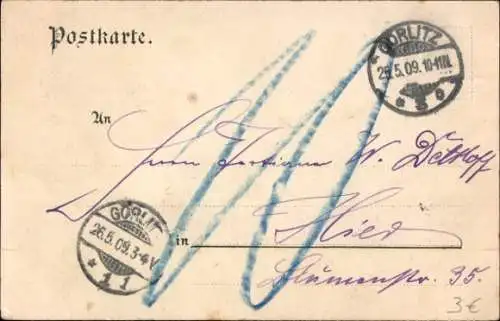 Postkarte.
GÖRLITZ
26.5.09.10-11N.
* 3 e
An
Herrn W. Dethloff
GÖRLITZ
26.5.09.3-4V
* 1 1
in Hier
Blumenstr. 35.
3€